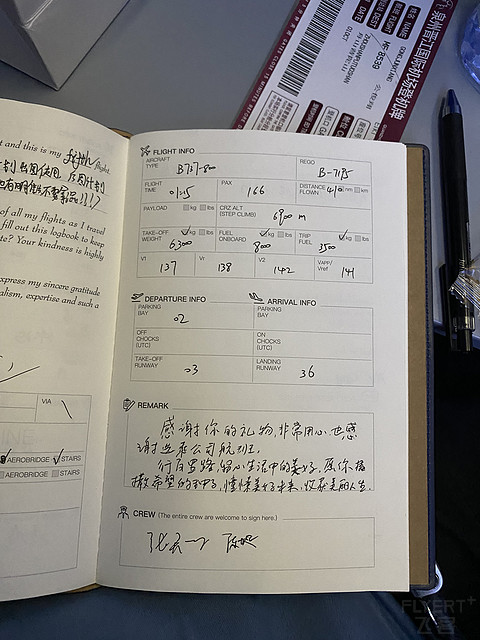 泉州晋江国际机场登机牌
姓名 NAME
GONGJIANGTANG
航班 FLIGHT
HF 8539
日期 DATE
ZHOUSHAN/PUTUOSHAN
t and this is my flight.
of all my flights as I travel
fill out this logbook to keep
te? Your kindness is highly
xpress my sincere gratitude
alism, expertise and such a
VIA
AEROBRIDGE STAIRS
AEROBRIDGE STAIRS
FLIGHT INFO
AIRCRAFT TYPE B737-800
REGO B-7195
FLIGHT TIME 01:15
PAX 166
DISTANCE FLOWN 410 nm km
PAYLOAD kg lbs
CRZ ALT (STEP CLIMB) 6900 m
TAKE-OFF WEIGHT kg lbs 63000
FUEL ONBOARD kg lbs 8000
TRIP FUEL kg lbs 3500
V1 137
Vr 138
V2 142
VAPP/Vref 141
DEPARTURE INFO
ARRIVAL INFO
PARKING BAY 02
PARKING BAY
OFF CHOCKS (UTC)
ON CHOCKS (UTC)
TAKE-OFF RUNWAY 03
LANDING RUNWAY 36
REMARK
感谢你的礼物,非常用心,也感
谢选乘公司航班.
生活中的美好.愿你播
撒希望的种子,憧憬美好未来,收获美丽人生.
CREW (The entire crew are welcome to sign here.)
FLYERT+
飞客